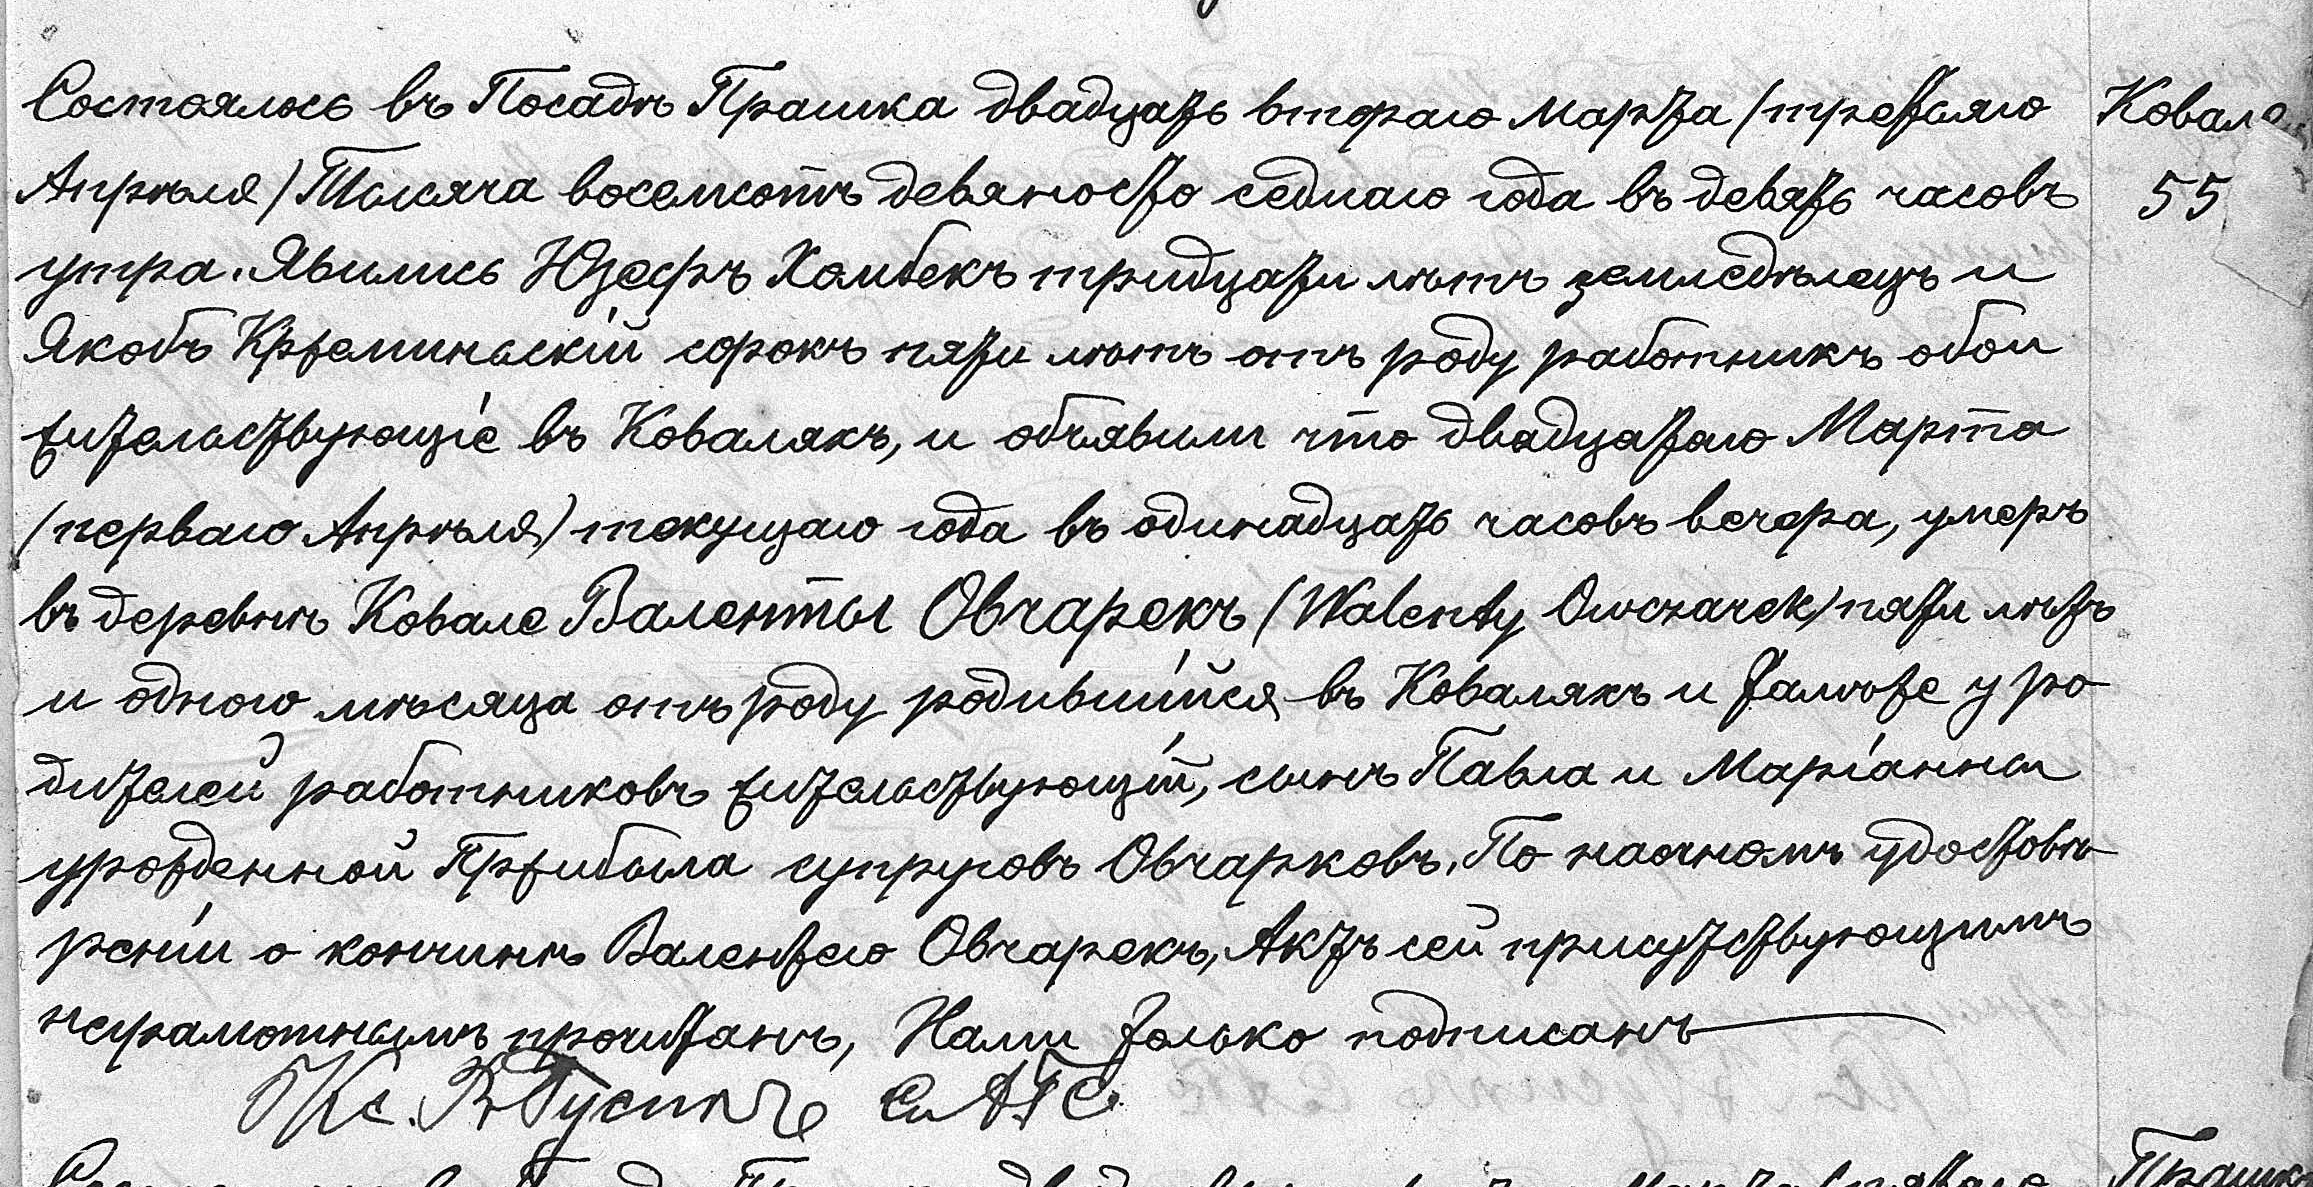 Состоялось въ Посадѣ Прашка двадцать втораго Марта (третьяго
Ковале
Апрѣля) Тысяча восемсотъ девяносто седмаго года въ девять часовъ
55
утра. Явились Юзефъ Хамбекъ тридцати лѣтъ земледѣлецъ и
Якобъ Крѕеминьскій сорокъ пяти лѣтъ отъ роду работникъ обои
жительствующіе въ Ковалякъ, и объявили что двадцатаго Марта
(перваго Апрѣля) текущаго года въ одинадцать часовъ вечера, умеръ
въ деревнѣ Ковале Валенты Овчарекъ (Walenty Owczarek) пяти лѣтъ
и одного мѣсяца отъ роду родившійся въ Ковалякъ и тамъже у ро
дителей работниковъ жительствующій, сынъ Павла и Маріанны
урожденной Пржибыла супруговъ Овчарковъ. По наочномъ удостовѣ
реніи о кончинѣ Валентего Овчарекъ, Актъ сей присутствующимъ
неграмотнымъ прочитанъ, Нами только подписанъ
Кс.